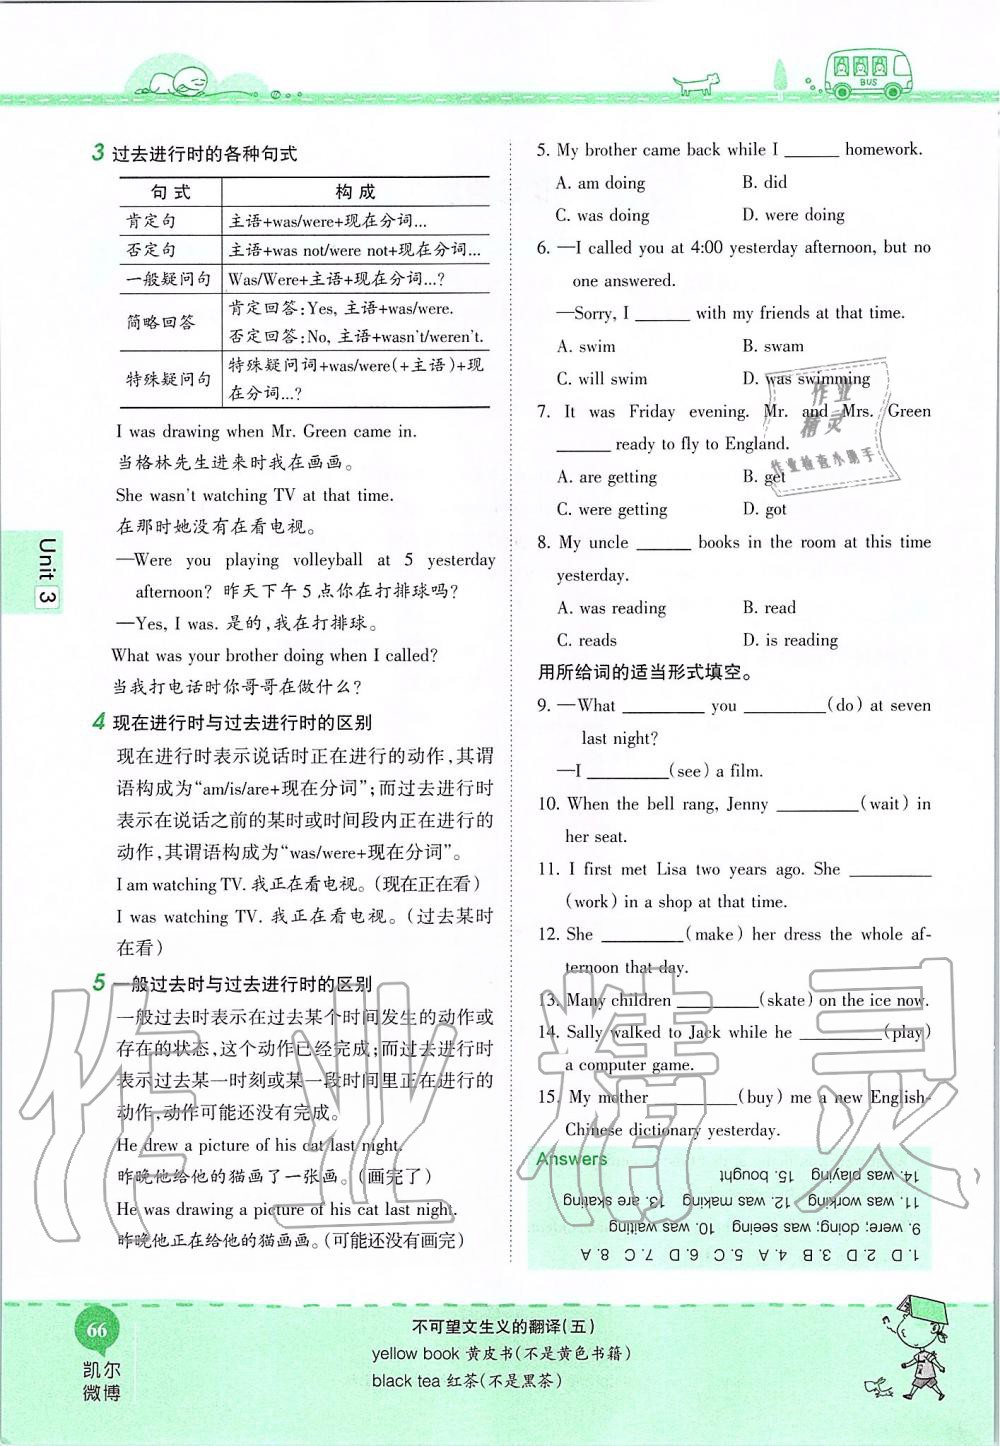 BUS
3 过去进行时的各种句式
句 式 构 成
肯定句 主语+was/were+现在分词...
否定句 主语+was not/were not+现在分词...
一般疑问句 Was/Were+主语+现在分词...?
简略回答 肯定回答:Yes, 主语+was/were.
否定回答:No, 主语+wasn't/weren't.
特殊疑问句 特殊疑问词+was/were(+主语)+现
在分词...?
I was drawing when Mr. Green came in.
当格林先生进来时我在画画。
She wasn't watching TV at that time.
在那时她没有在看电视。
—Were you playing volleyball at 5 yesterday
afternoon? 昨天下午5点你在打排球吗?
—Yes, I was. 是的,我在打排球。
What was your brother doing when I called?
当我打电话时你哥哥在做什么?
4 现在进行时与过去进行时的区别
现在进行时表示说话时正在进行的动作,其谓
语构成为“am/is/are+现在分词”;而过去进行时
表示在说话之前的某时或时间段内正在进行的
动作,其谓语构成为“was/were+现在分词”。
I am watching TV. 我正在看电视。(现在正在看)
I was watching TV. 我正在看电视。(过去某时
在看)
5 一般过去时与过去进行时的区别
一般过去时表示在过去某个时间发生的动作或
存在的状态,这个动作已经完成;而过去进行时
表示过去某一时刻或某一段时间里正在进行的
动作,动作可能还没有完成。
He drew a picture of his cat last night.
昨晚他给他的猫画了一张画。(画完了)
He was drawing a picture of his cat last night.
昨晚他正在给他的猫画画。(可能还没有画完)
Unit 3
5. My brother came back while I ______ homework.
A. am doing B. did
C. was doing D. were doing
6. —I called you at 4:00 yesterday afternoon, but no
one answered.
—Sorry, I ______ with my friends at that time.
A. swim B. swam
C. will swim D. was swimming
7. It was Friday evening. Mr. and Mrs. Green
______ ready to fly to England.
A. are getting B. get
C. were getting D. got
8. My uncle ______ books in the room at this time
yesterday.
A. was reading B. read
C. reads D. is reading
用所给词的适当形式填空。
9. —What _________ you _________(do) at seven
last night?
—I _________(see) a film.
10. When the bell rang, Jenny _________(wait) in
her seat.
11. I first met Lisa two years ago. She _________
(work) in a shop at that time.
12. She _________(make) her dress the whole af-
ternoon that day.
13. Many children _________(skate) on the ice now.
14. Sally walked to Jack while he _________(play)
a computer game.
15. My mother _________(buy) me a new English-
Chinese dictionary yesterday.
Answers
1. D 2. D 3. B 4. A 5. C 6. D 7. C 8. A
9. were; doing; was seeing 10. was waiting
11. was working 12. was making 13. are skating
14. was playing 15. bought
作业
精灵
作业检查小助手
作业精灵
66
凯尔
微博
不可望文生义的翻译(五)
yellow book 黄皮书(不是黄色书籍)
black tea 红茶(不是黑茶)